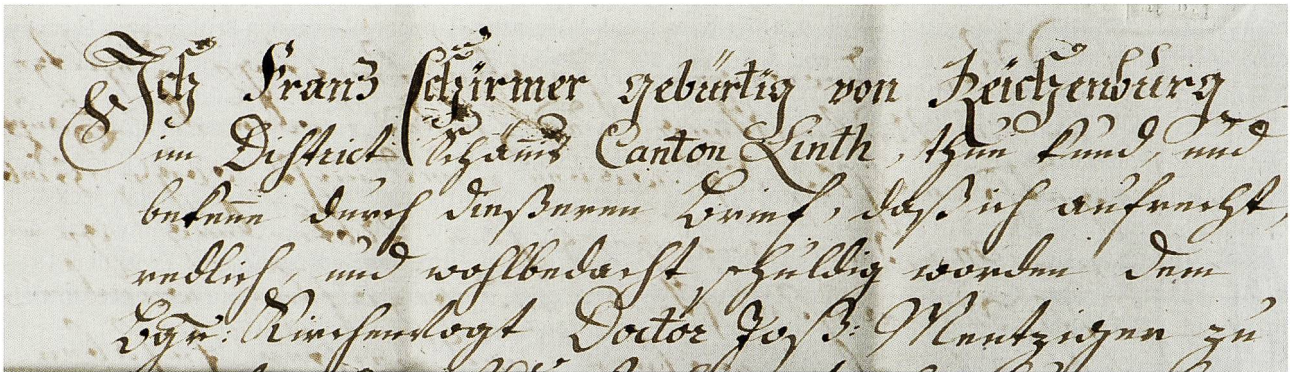 Ich Franz Schirmer gebürtig von Reichenburg
im District Schänis Canton Linth, thue kund, und
bekene durch dießeren Brief, daß ich aufrecht,
redlich, und wohlbedacht schuldig worden dem
Bgr: Kirchenvogt Doctor Joß: Mentziger zu